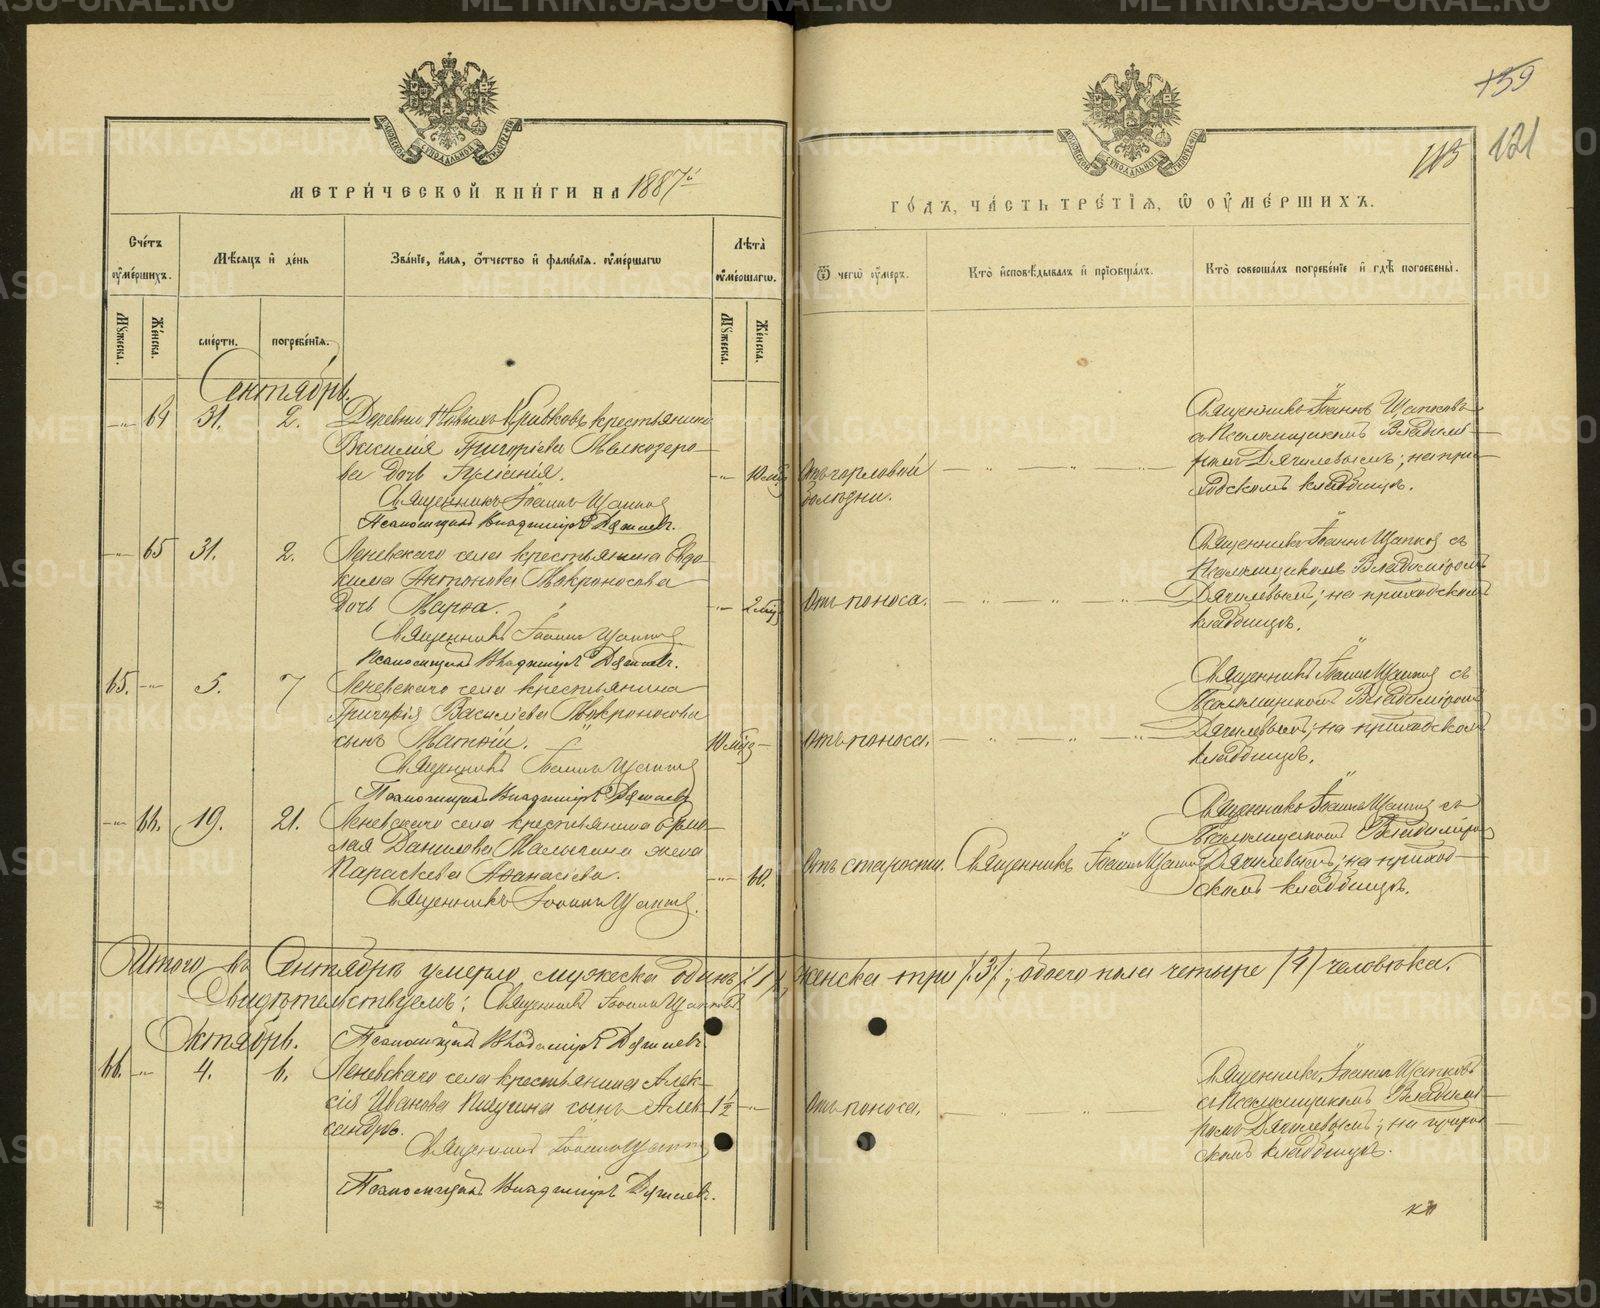 159
113 121
МЕТРИЧЕСКОЙ КНИГИ НА 1887й
ГОДЪ, ЧАСТЬ ТРЕТІЯ, Ѿ ОУМЕРШИХЪ.
Счетъ оумершихъ.
Мѣсяцъ и день
Званіе, имя, отчество и фамилія оумершагω
Лѣта оумершагω.
Ѿ чегω оумеръ.
Кто исповѣдывалъ и пріобщалъ.
Кто совершалъ погребеніе и гдѣ погребены.
Мужеска.
Женска.
смерти.
погребенія.
Мужеска.
Женска.
Сентябрь.
64 31. 2. Деревни Новыхъ Кривковъ крестьянина
Василія Григоріева Малкозеро-
ва дочь 10 мѣс. Отъ горловой
болѣзни.
Священникъ Іоаннъ Щапковъ
съ Псаломщикомъ Владимі-
ромъ Дягилевымъ; на при-
ходскомъ кладбищѣ.
Священникъ Іоаннъ Щапковъ
Псаломщикъ Владиміръ Дягилевъ.
65 31. 2. Леневскаго села крестьянина Евдо-
кима Антонова Мокроносова
дочь Марѳа. 2 мѣс. Отъ поноса.
Священникъ Іоаннъ Щапковъ съ
Псаломщикомъ Владиміромъ
Дягилевымъ; на приходскомъ
кладбищѣ.
Священникъ Іоаннъ Щапковъ
Псаломщикъ Владиміръ Дягилевъ.
65. 5. 7 Леневскаго села крестьянина
Григорія Васильева Мокроносова
сынъ 10 мѣс. Отъ поноса.
Священникъ Іоаннъ Щапковъ съ
Псаломщикомъ Владиміромъ
Дягилевымъ; на приходскомъ
кладбищѣ.
Священникъ Іоаннъ Щапковъ
Псаломщикъ Владиміръ Дягилевъ
66. 19. 21. Леневскаго села крестьянина Ермо-
лая Данилова Малыгина жена
Параскева Аѳанасіева. 60. Отъ старости. Священникъ Іоаннъ Щапковъ
Священникъ Іоаннъ Щапковъ съ
Псаломщикомъ Владиміромъ
Дягилевымъ; на приход-
скомъ кладбищѣ.
Священникъ Іоаннъ Щапковъ.
Итого въ Сентябрѣ умерло мужеска одинъ /1/, женска три /3/; обоего пола четыре /4/ человѣка.
Свидѣтельствуемъ: Священникъ Іоаннъ Щапковъ
Псаломщикъ Владиміръ Дягилевъ.
Октябрь.
66. 4. 6. Леневскаго села крестьянина Алек-
сія Иванова Пичугина сынъ Алек-
сандръ. 1½ Отъ поноса.
Священникъ Іоаннъ Щапковъ
съ Псаломщикомъ Владимі-
ромъ Дягилевымъ; на приход-
скомъ кладбищѣ.
Священникъ Іоаннъ Щапковъ
Псаломщикъ Владиміръ Дягилевъ.
METRIKI.GASO-URAL.RU